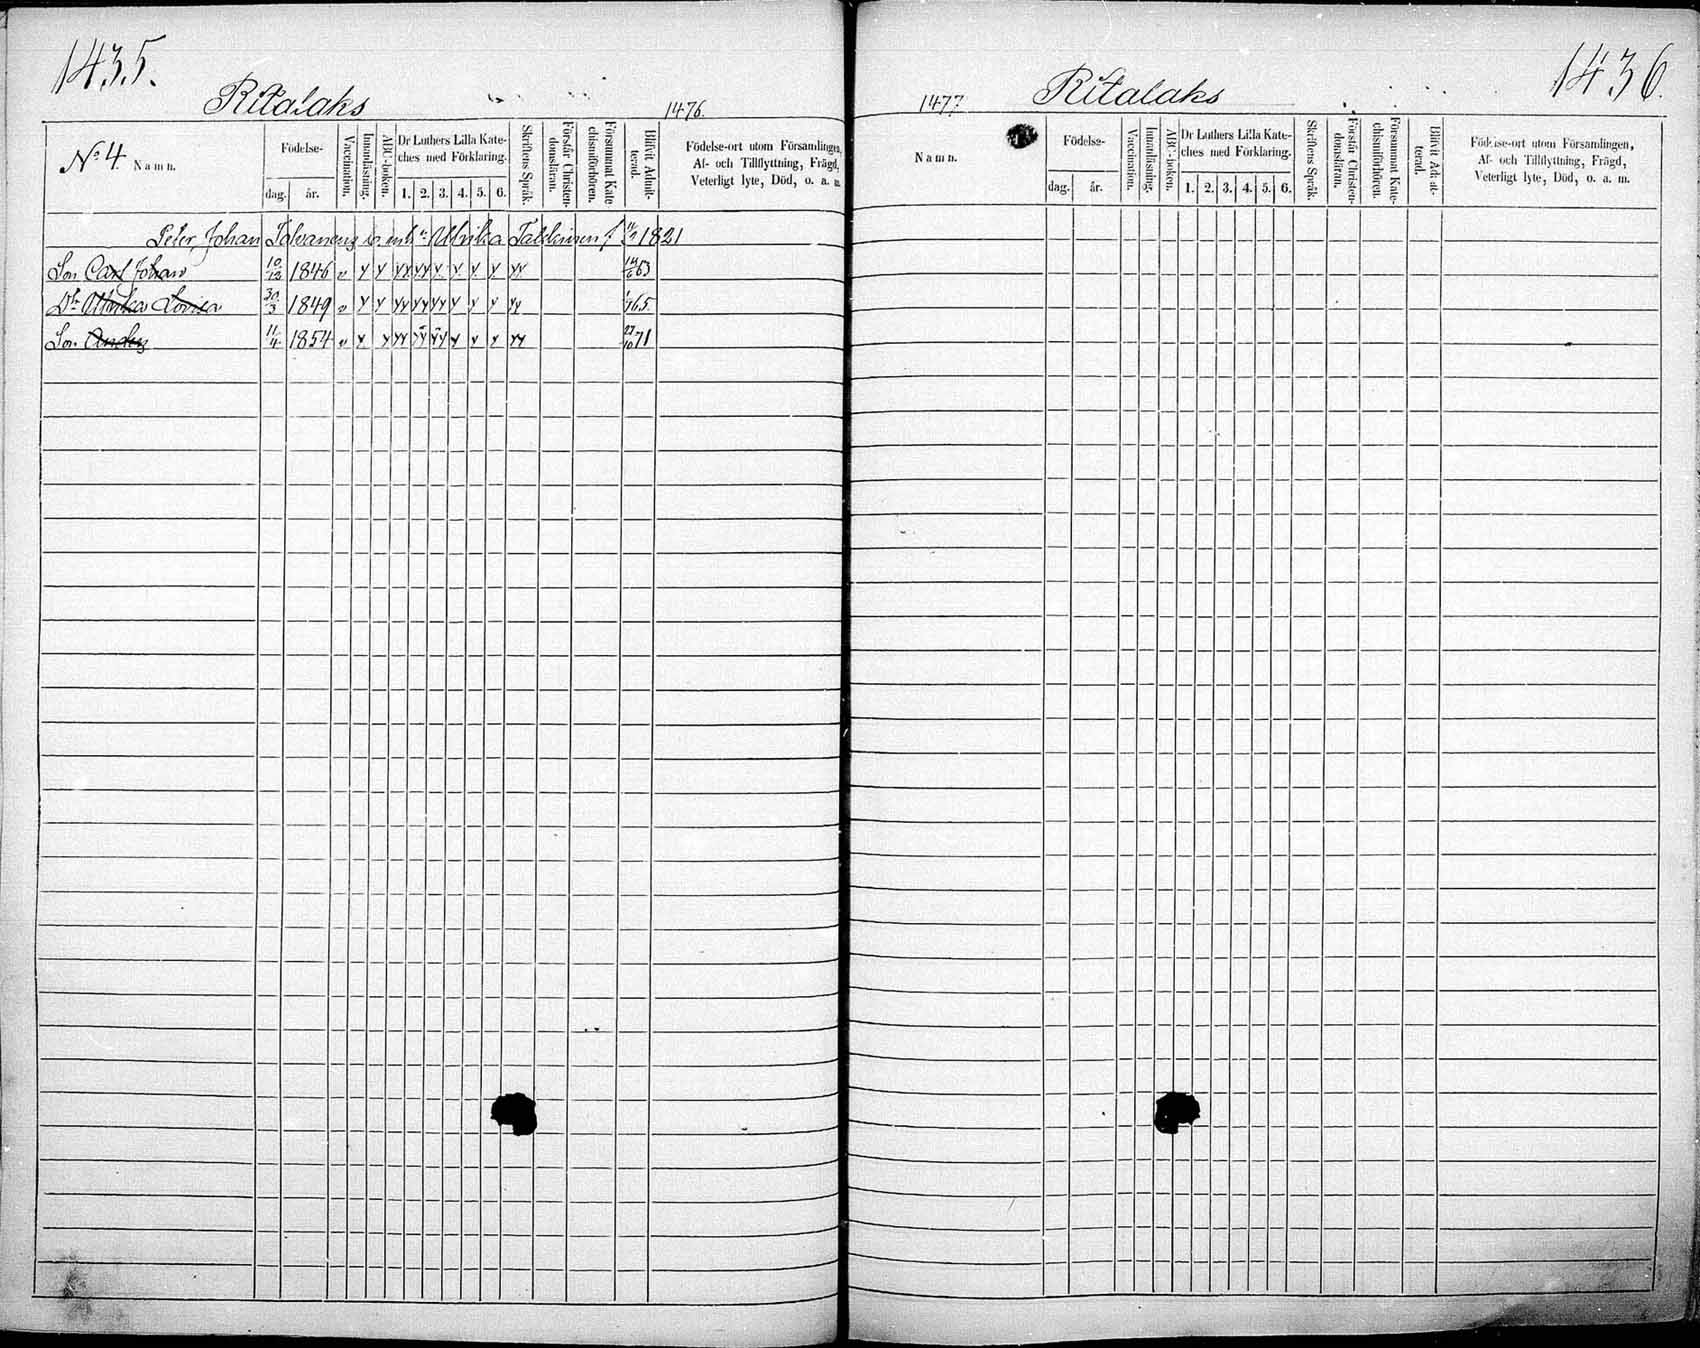 1435.
Ritalaks
1476.
No 4.
Namn.
Födelse-
dag.
år.
Vaccination.
Innanläsning.
ABC-boken.
Dr Luthers Lilla Kate-
ches med Förklaring.
1. 2. 3. 4. 5. 6.
Skriftens Språk.
Förstår Christen-
domsläran.
Försummat Kate-
chismiförhören.
Blifvit Admit-
terad.
Födelse-ort utom Församlingen,
Af- och Tillflyttning, Frägd,
Veterligt lyte, Död, o. a. m.
Peter Johan Tolvaneng Ulrika 1821
Son Carl Johan 10/12 1846 v y y yy yy y y y y yy 14/6 63
Dr Ulrika Lovisa 30/3 1849 v y y yy yy yy y y y yy 65.
Son Anders 11/4 1854 v y y yy yy yy y y y yy 22/10 71
1436.
Ritalaks
1477.
Namn.
Födelse-
dag.
år.
Vaccination.
Innanläsning.
ABC-boken.
Dr Luthers Lilla Kate-
ches med Förklaring.
1. 2. 3. 4. 5. 6.
Skriftens Språk.
Förstår Christen-
domsläran.
Försummat Kate-
chismiförhören.
Blifvit Admit-
terad.
Födelse-ort utom Församlingen,
Af- och Tillflyttning, Frägd,
Veterligt lyte, Död, o. a. m.